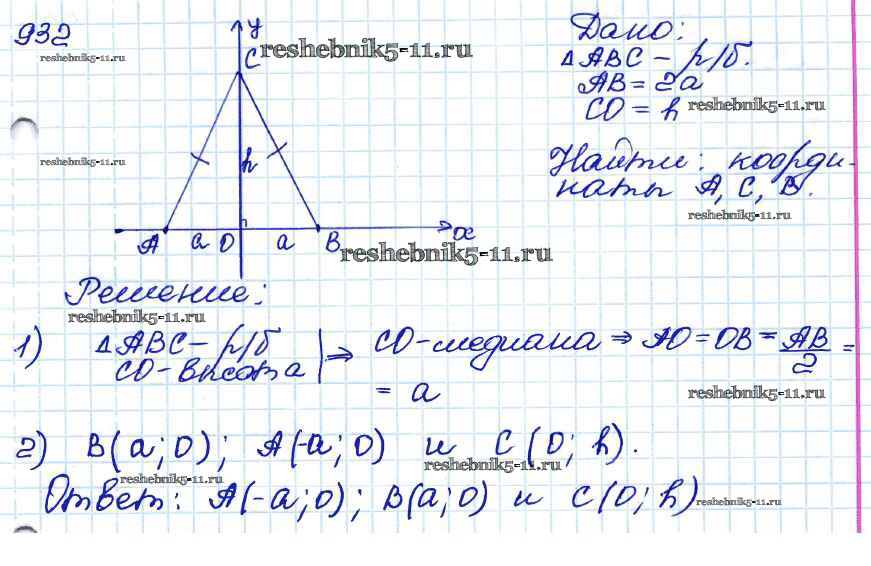 932
reshebnik5-11.ru
y
C
reshebnik5-11.ru
Дано:
△ABC - р/б.
AB = 2a
CO = h
reshebnik5-11.ru
reshebnik5-11.ru
h
Найти: коорди-
наты A, C, B.
reshebnik5-11.ru
A a O a B x
reshebnik5-11.ru
Решение:
reshebnik5-11.ru
1) △ABC - р/б | ⇒ CO-медиана ⇒ AO = OB = AB/2 =
CO-высота
= a
reshebnik5-11.ru
2) B(a; 0); A(-a; 0) и C(0; h).
reshebnik5-11.ru
reshebnik5-11.ru
Ответ: A(-a; 0); B(a; 0) и C(0; h)
reshebnik5-11.ru